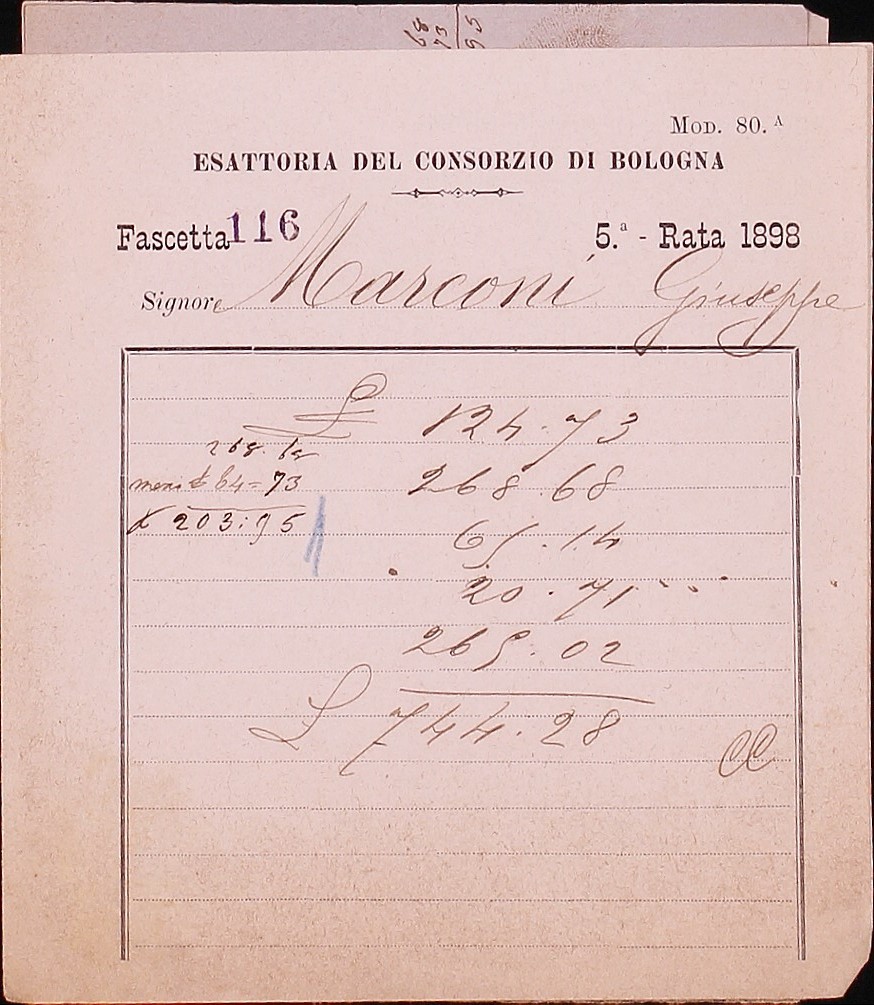 68
73
95
Mod. 80.A
ESATTORIA DEL CONSORZIO DI BOLOGNA
Fascetta 116
5.a - Rata 1898
Signore Marconi Giuseppe
£ 124.73
268.68
meni £ 64=73
£ 203:95
268.68
65.14
20.71
265.02
£ 744.28
CC